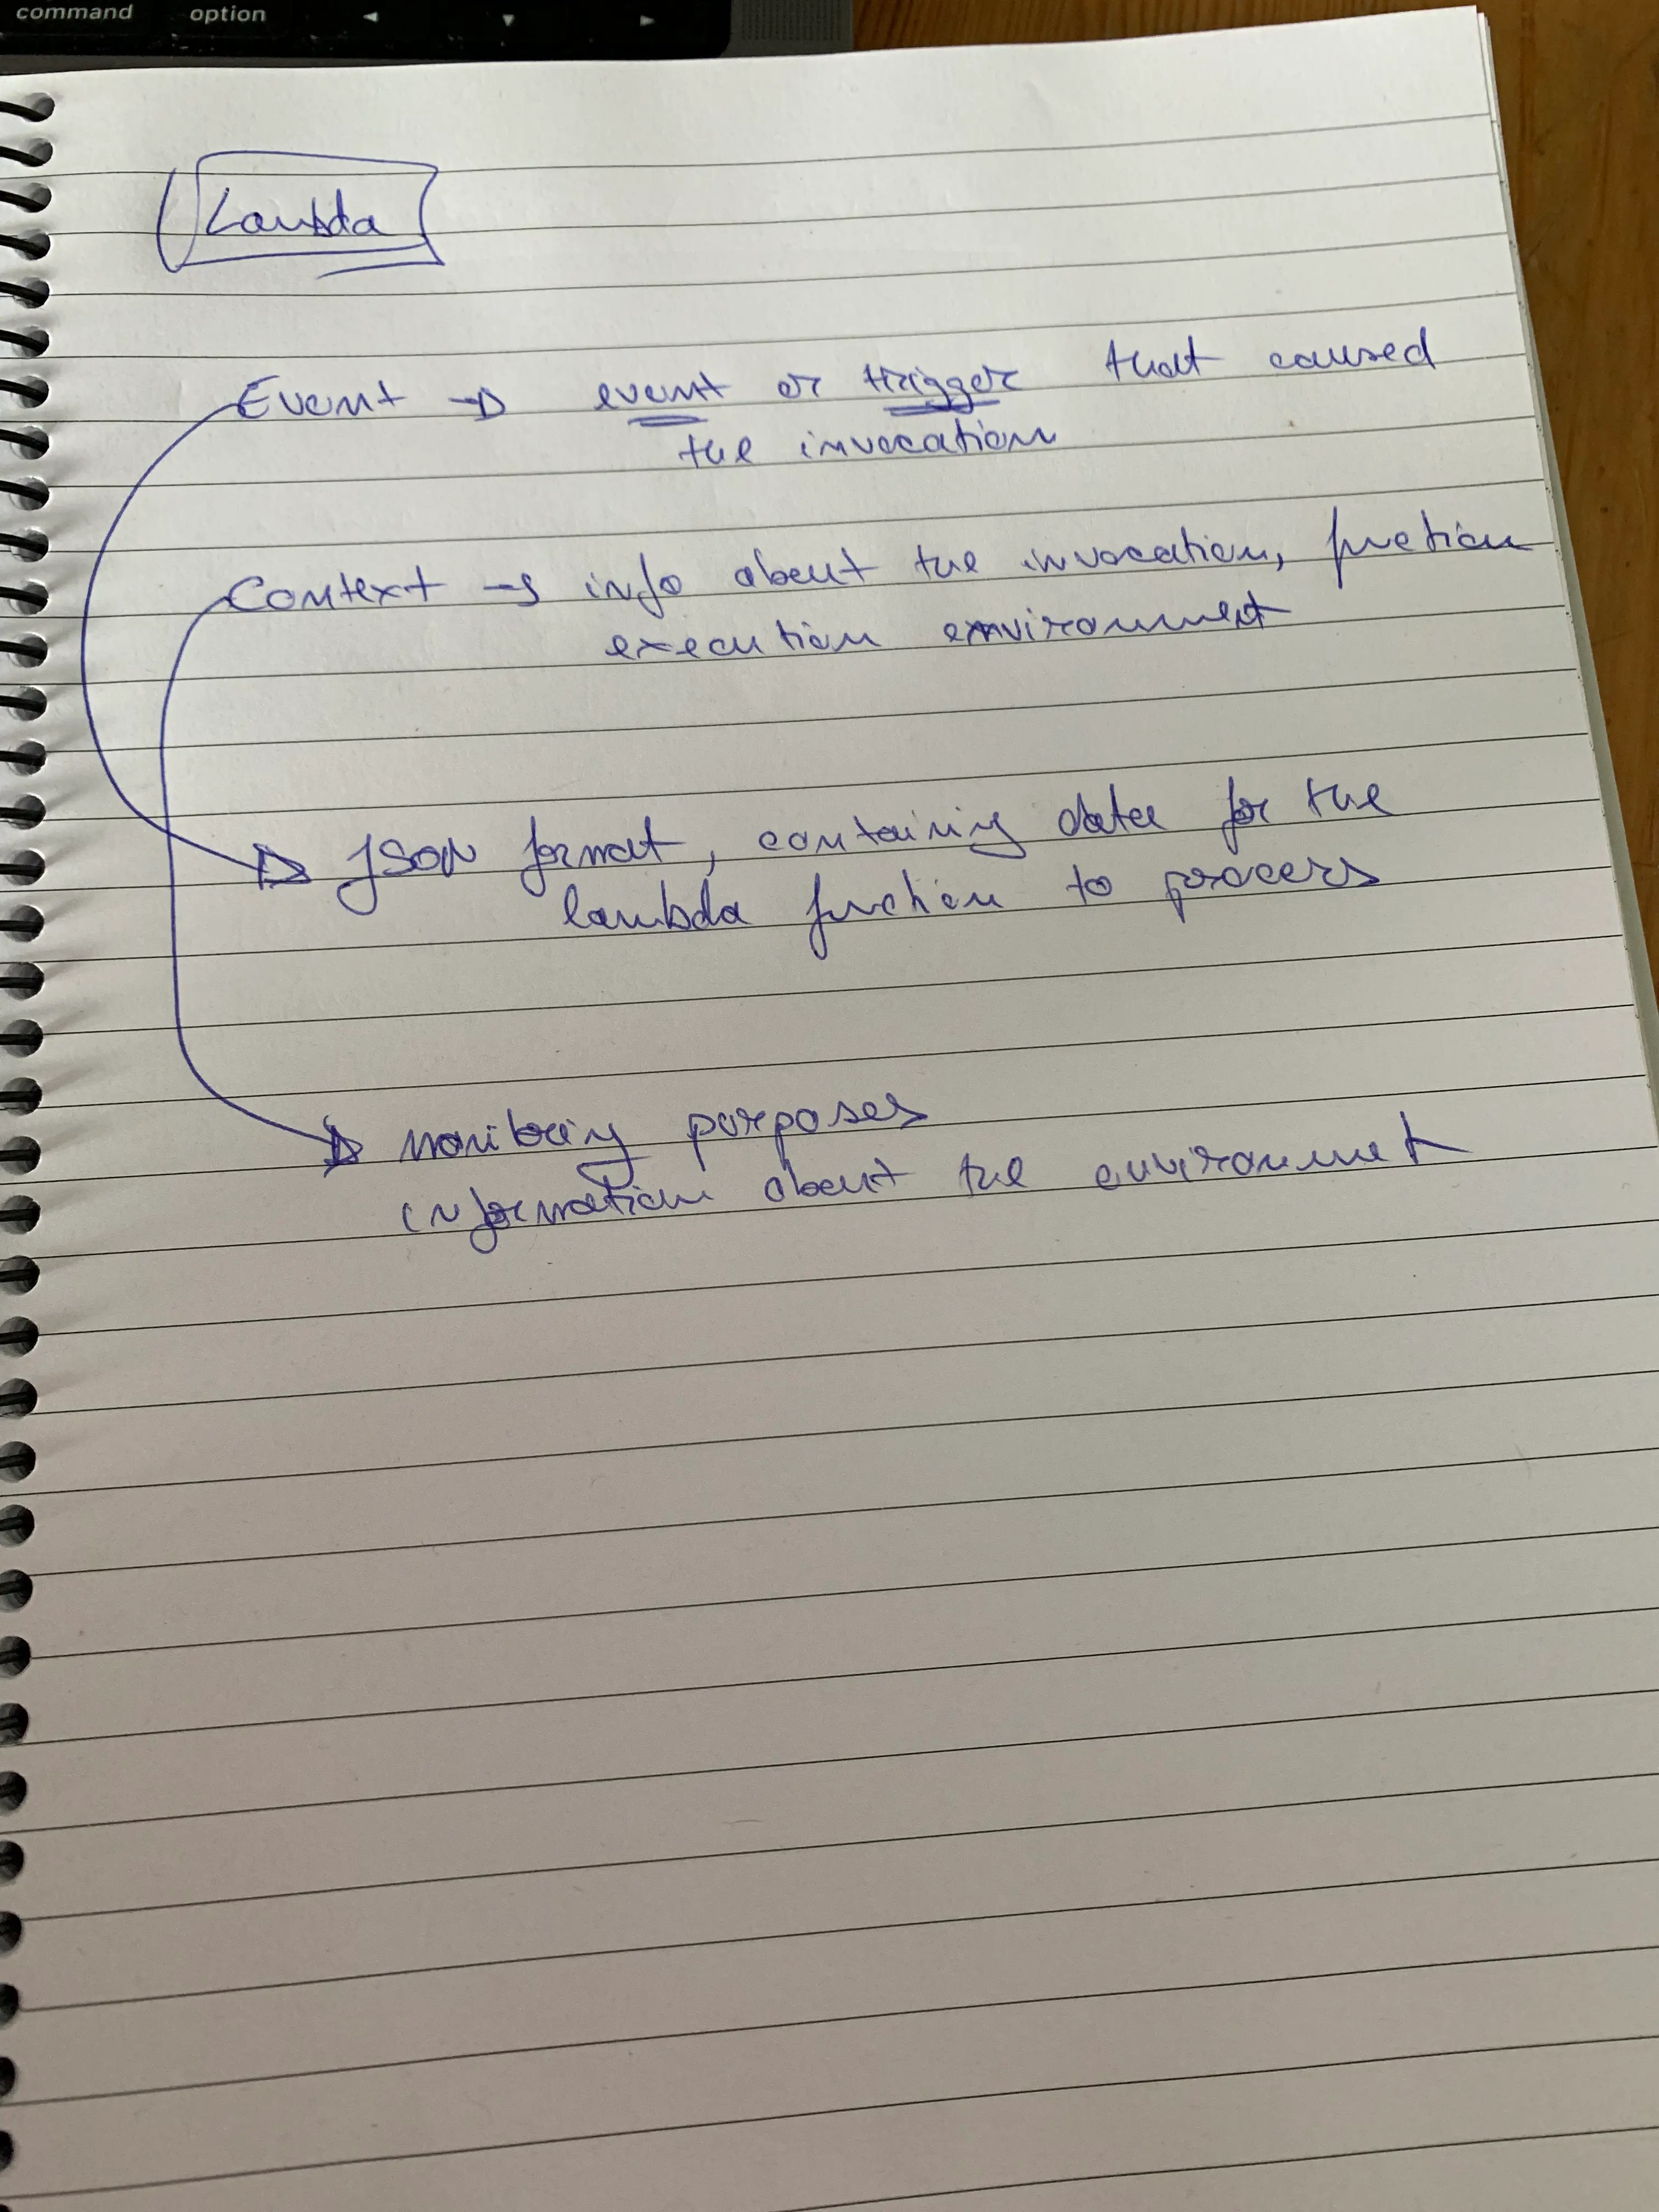 command option ◄ ▼ ►
Lambda
Event → event or trigger that caused
the invocation
Context → info about the invocation, function
execution environment
→ JSON format, containing data for the
lambda function to process
→ monitoring purposes
information about the environment